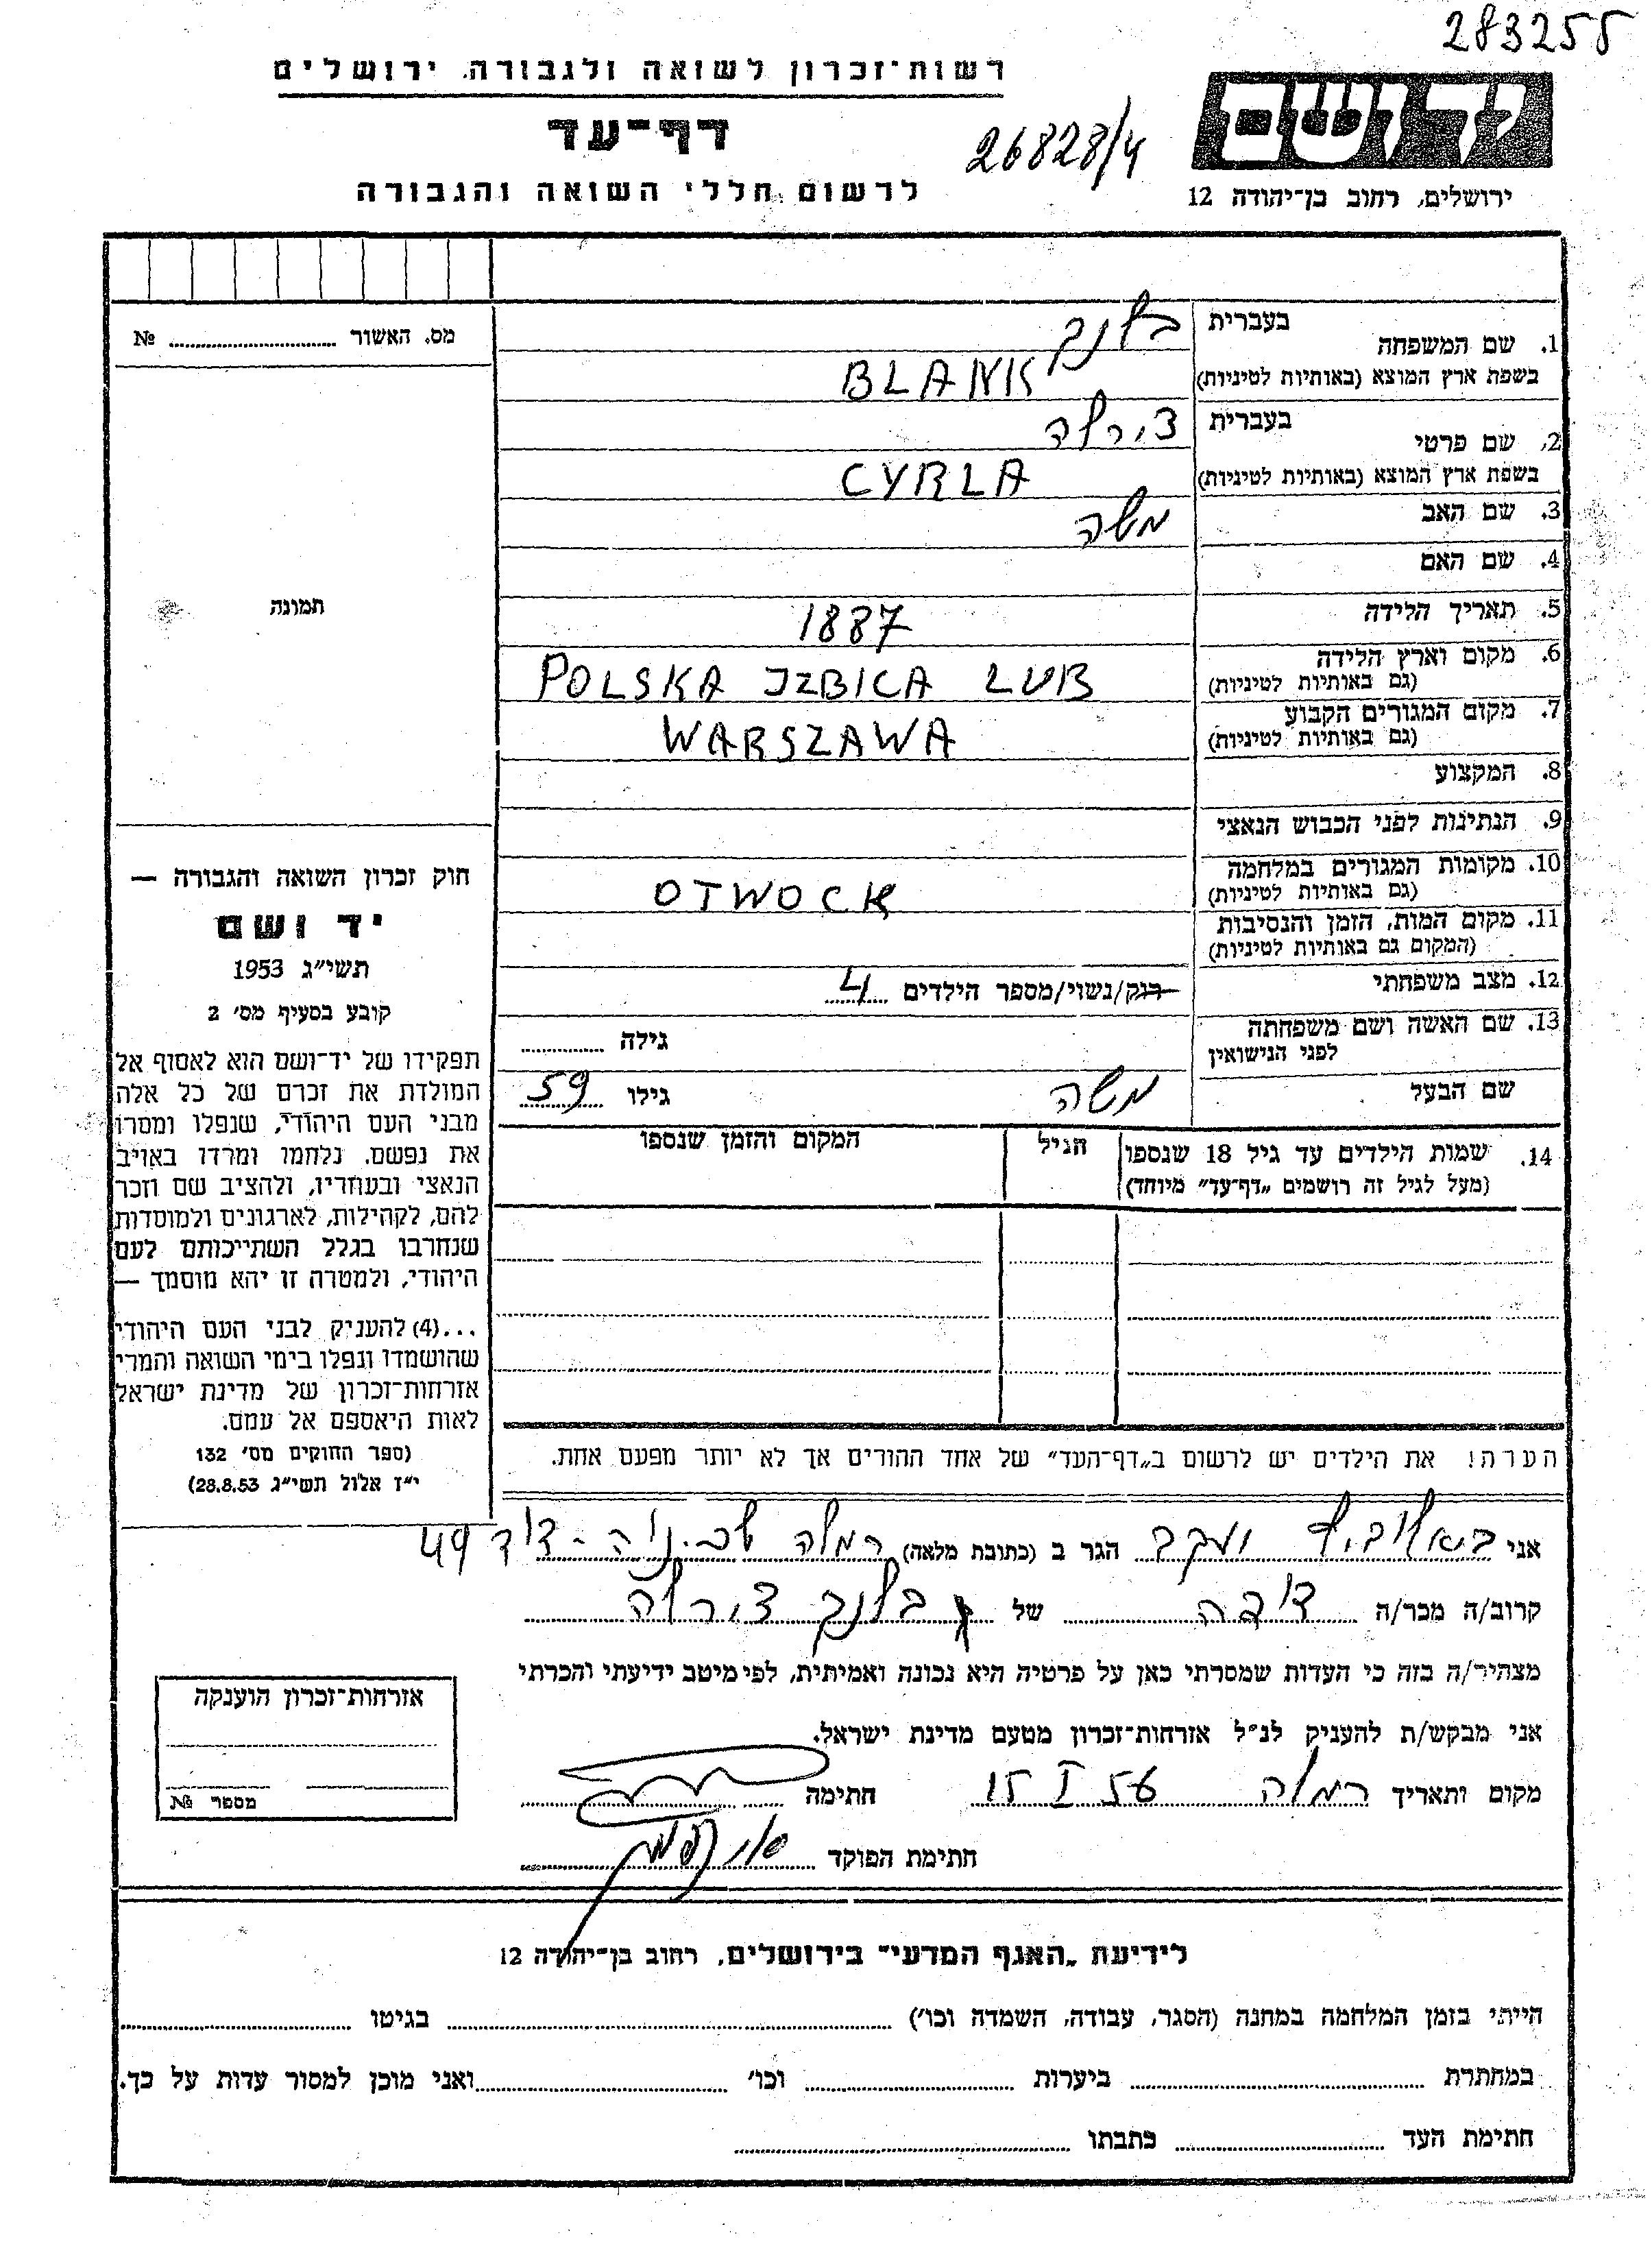 283255
רשות־זכרון לשואה ולגבורה, ירושלים
דף־עד
לרשום חללי השואה והגבורה
26828/4
יד ושם
ירושלים, רחוב בן־יהודה 12
מס. האשור № 
תמונה
חוק זכרון השואה והגבורה —
יד ושם
תשי״ג 1953
קובע בסעיף מס׳ 2
תפקידו של יד־ושם הוא לאסוף אל
המולדת את זכרם של כל אלה
מבני העם היהודי, שנפלו ומסרו
את נפשם, נלחמו ומרדו באויב
הנאצי ובעוזריו, ולהציב שם וזכר
להם, לקהילות, לארגונים ולמוסדות
שנחרבו בגלל השתייכותם לעם
היהודי, ולמטרה זו יהא מוסמך —
...(4) להעניק לבני העם היהודי
שהושמדו ונפלו בימי השואה והמרי
אזרחות־זכרון של מדינת ישראל
לאות היאספם אל עמם.
(ספר החוקים מס׳ 132
י״ז אלול תשי״ג 28.8.53)
1. שם המשפחה בעברית בלנק
בשפת ארץ המוצא (באותיות לטיניות) BLANK
2. שם פרטי בעברית צירלה
בשפת ארץ המוצא (באותיות לטיניות) CYRLA
3. שם האב משה
4. שם האם
5. תאריך הלידה 1887
6. מקום וארץ הלידה (גם באותיות לטיניות) POLSKA IZBICA LUB
7. מקום המגורים הקבוע (גם באותיות לטיניות) WARSZAWA
8. המקצוע
9. הנתינות לפני הכבוש הנאצי
10. מקומות המגורים במלחמה (גם באותיות לטיניות) OTWOCK
11. מקום המות, הזמן והנסיבות
(המקום גם באותיות לטיניות)
12. מצב משפחתי רוק/נשוי/מספר הילדים 4
13. שם האשה ושם משפחתה לפני הנישואין גילה
שם הבעל משה גילו 59
14. שמות הילדים עד גיל 18 שנספו הגיל המקום והזמן שנספו
(מעל לגיל זה רושמים „דף־עד״ מיוחד)
הערה! את הילדים יש לרשום ב„דף־העד״ של אחד ההורים אך לא יותר מפעם אחת.
אני יעקב הגר ב (כתובת מלאה) רמלה 49
קרוב/ה מכר/ה של בלנק צירלה
מצהיר/ה בזה כי העדות שמסרתי כאן על פרטיה היא נכונה ואמיתית, לפי מיטב ידיעתי והכרתי
אני מבקש/ת להעניק לנ״ל אזרחות־זכרון מטעם מדינת ישראל.
מקום ותאריך רמלה 15 I 56 חתימה
חתימת הפוקד
אזרחות־זכרון הוענקה
מספר №
לידיעת „האגף המדעי״ בירושלים, רחוב בן־יהודה 12
הייתי בזמן המלחמה במחנה (הסגר, עבודה, השמדה וכו׳) בגיטו
במחתרת ביערות וכו׳ ואני מוכן למסור עדות על כך.
חתימת העד כתבתו